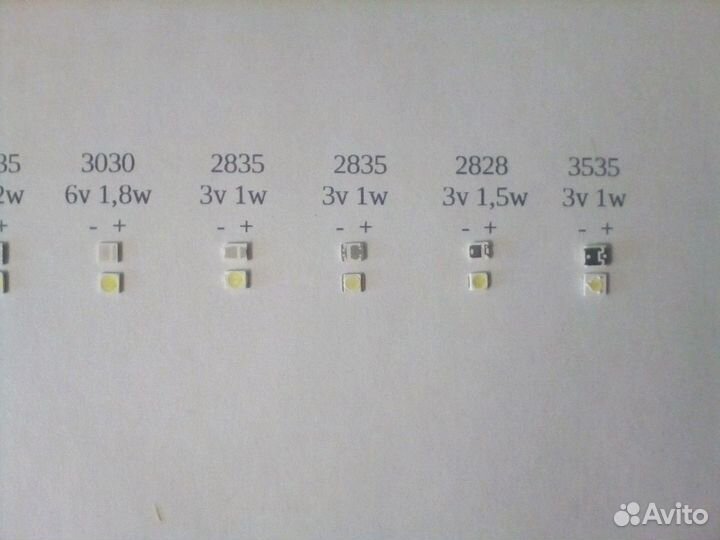 35 3030 2835 2835 2828 3535
2w 6v 1,8w 3v 1w 3v 1w 3v 1,5w 3v 1w
+ - + - + - + - + - +
Avito